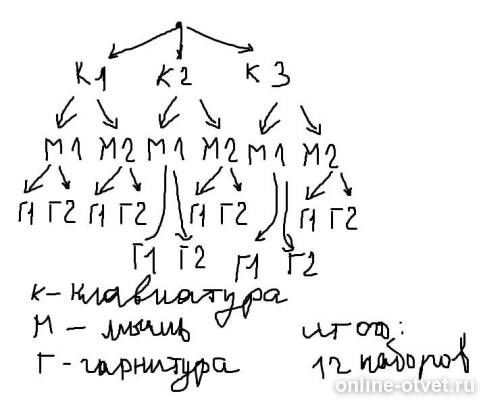 К1 К2 К3
М1 М2 М1 М2 М1 М2
Г1 Г2 Г1 Г2 Г1 Г2 Г1 Г2
Г1 Г2 Г1 Г2
К - клавиатура
М - мышь
Г - гарнитура
итого:
12 наборов
online-otvet.ru